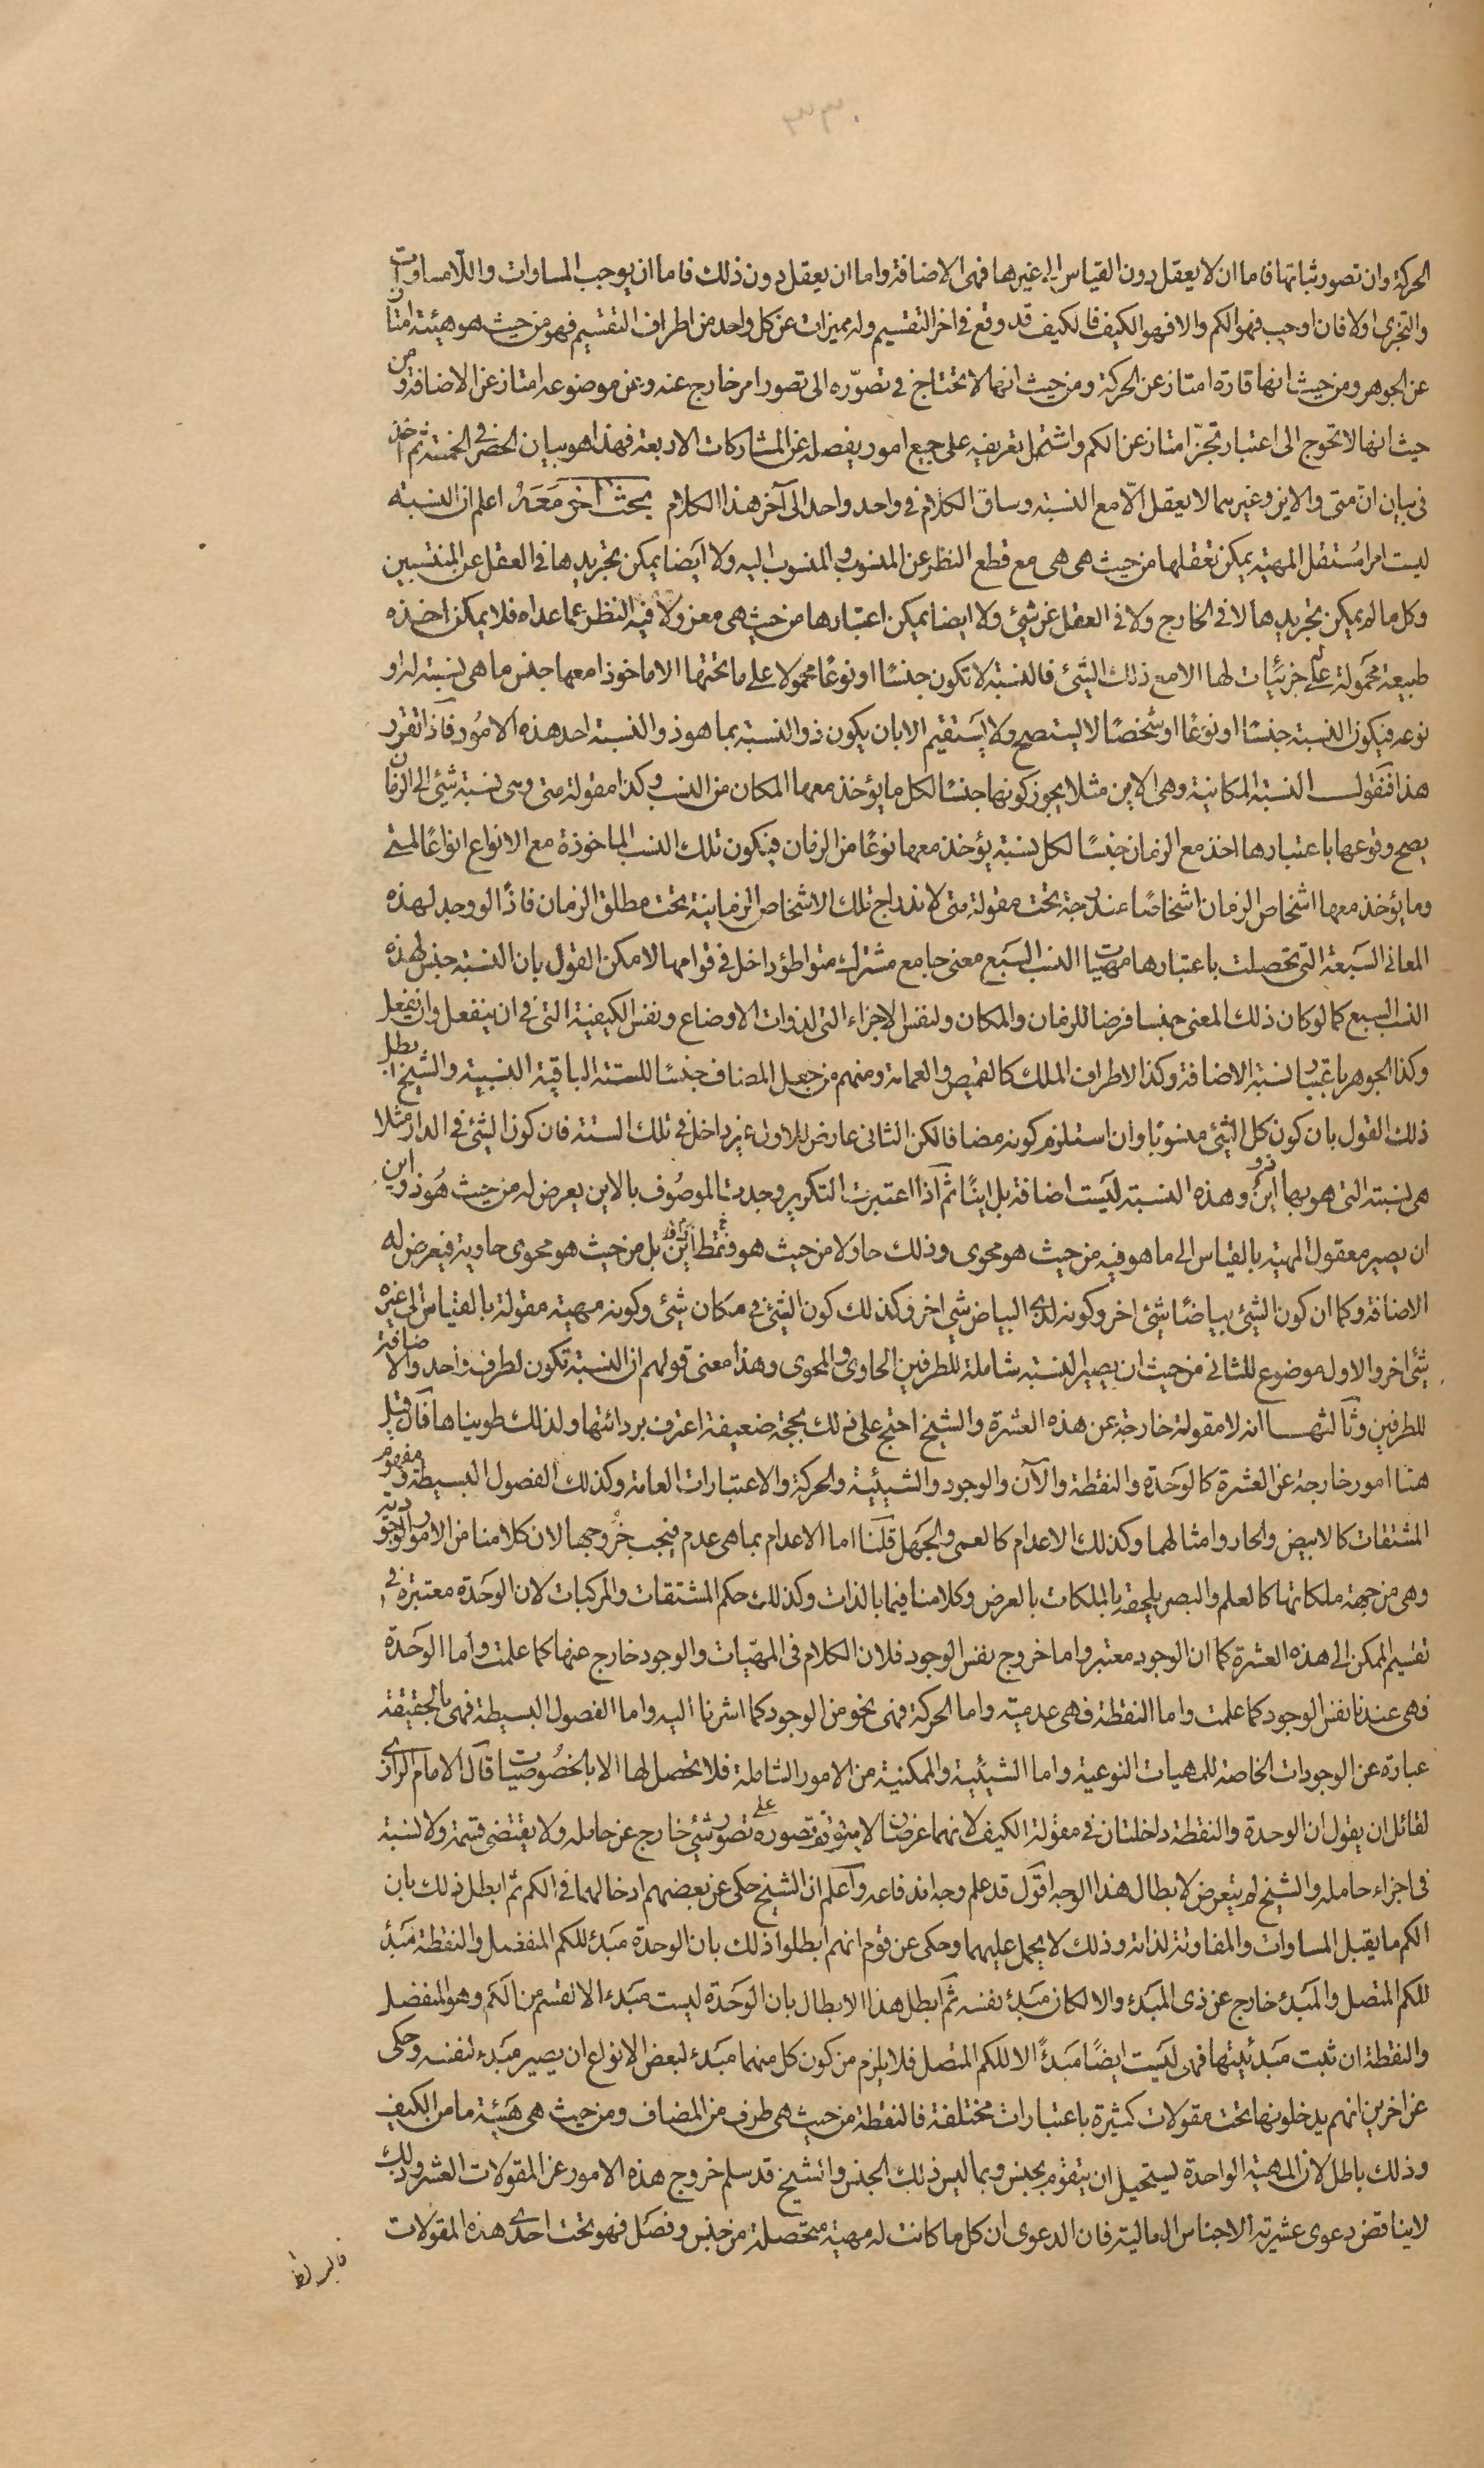 ٣٣٠
الحركة وان تصور ثباتها فاما ان لا يعقل دون القياس الى غيرها فهى الاضافة واما ان يعقل دون ذلك فاما ان يوجب المساوات واللامساوات
والتجزى اولا فان اوجب فهو الكم والا فهو الكيف فالكيف قد وقع فى اخر التقسيم وله مميزات عن كل واحد من اطراف التقسيم فهو من حيث هو هيئة امتاز
عن الجوهر ومن حيث انها قارة امتاز عن الحركة ومن حيث انها لا تحتاج فى تصوره الى تصور امر خارج عنه وعن موضوعه امتاز عن الاضافة ومن
حيث انها لا تحوج الى اعتبار تجز امتاز عن الكم واشتمل تعريفه على جميع امور يفصله عن المشاركات الاربعة فهذا هو بيان الحصر فى الخمسة ثم اخذ
فى بيان ان متى والاين وغيرهما لا يعقل الّا مع النسبة وساق الكلام فى واحد واحد الى آخر هذا الكلام بحث اخر معه اعلم ان النسبة
ليست امرا مستقل المهية يمكن تعقلها من حيث هى هى مع قطع النظر عن المنسوب والمنسوب اليه ولا ايضا يمكن تجريدها فى العقل عن المنتسبين
وكل ما لم يمكن تجريدها لا فى الخارج ولا فى العقل عن شئ ولا ايضا يمكن اعتبارها من حيث هى معزولا فيه النظر عما عداه فلا يمكن اخذه
طبيعة محمولة على جزئيات لها الا مع ذلك الشئ فالنسبة لا تكون جنسا او نوعا محمولا على ما تحتها الا ماخوذا معها جنس ما هى نسبة له او
نوعه فيكون النسبة جنسا او نوعا او شخصا لا يستصح ولا يستقيم الا بان يكون ذو النسبة بما هو ذو النسبة احد هذه الامور فاذا تقرر
هذا فنقول النسبة المكانية وهى الاين مثلا يجوز كونها جنسا لكل ما يؤخذ معها المكان من النسب وكذا مقولة متى وهى نسبة شئ الى الزمان
يصح وقوعها باعتبارها اخذ مع الزمان جنسا لكل نسبة يؤخذ معها نوعا من الزمان فيكون تلك النسب الماخوذة مع الانواع انواعا لمتى
وما يؤخذ معها اشخاص الزمان اشخاصا مندرجة تحت مقولة متى لاندراج تلك الاشخاص الزمانية تحت مطلق الزمان فاذا لو وجد لهذه
المعانى السبعة التى تحصلت باعتبارها مهيات النسب السبع معنى جامع مشترك متواطؤ داخل فى قوامها لامكن القول بان النسبة جنس لهذه
النسب السبع كما لو كان ذلك المعنى جنسا فرضا للزمان والمكان ولنفس الاجزاء التى لذوات الاوضاع ونفس الكيفية التى فى ان ينفعل وان يفعل
وكذا الجوهر باعتبار نسبة الاضافة وكذا الاطراف الملك كالقميص والعمامة ومنهم من جعل المضاف جنسا للستة الباقية النسبية والشيخ ابطل
ذلك القول بان كون كل الشئ منسوبا وان استلزم كونه مضافا لكن الثانى عارض للاول غير داخل فى تلك الستة فان كون الشئ فى الدار مثلا
هى نسبته التى هو بها ذو اين وهذه النسبة ليست اضافة بل اينا ثم اذا اعتبرت التكرير وجدت الموصوف بالاين يعرض له من حيث هو ذو اين
ان يصير معقول المهية بالقياس الى ما هو فيه من حيث هو محوى وذلك حاو لا من حيث هو فقط اين بل من حيث هو محوى حاويه فيعرض له
الاضافة وكما ان كون الشئ بياضا شئ اخر وكونه لدى البياض شئ اخر وكذلك كون الشئ فى مكان شئ وكونه مهية مقولة بالقياس الى غيره
شئ اخر والاول موضوع للثانى من حيث ان يصير النسبة شاملة للطرفين الحاوى والمحوى وهذا معنى قولهم ان النسبة تكون لطرف واحد والاضافة
للطرفين وثالثها انه لا مقولة خارجة عن هذه العشرة والشيخ احتج على ذلك بحجة ضعيفة اعترف بردائتها ولذلك طويناها فان قيل
هنا امور خارجة عن العشرة كالوحدة والنقطة والآن والوجود والشيئية والحركة والاعتبارات العامة وكذلك الفصول البسيطة ومفهوم
المشتقات كالابيض والحار وامثالهما وكذلك الاعدام كالعمى والجهل قلنا اما الاعدام بما هى عدم فيجب خروجها لان كلامنا من الامور الوجودية
وهى من جهة ملكاتها كالعلم والبصر يلحقه بالملكات بالعرض وكلامنا فيما بالذات وكذلك حكم المشتقات والمركبات لان الوحدة معتبرة فى
تقسيم الممكن الى هذه العشرة كما ان الوجود معتبر واما خروج نفس الوجود فلان الكلام فى المهيات والوجود خارج عنها كما علمت واما الوحدة
فهى عندنا نفس الوجود كما علمت واما النقطة فهى عدمية واما الحركة فهى نحو من الوجود كما اشرنا اليه واما الفصول البسيطة فهى بالحقيقة
عبارة عن الوجودات الخاصة للمهيات النوعية واما الشيئية والممكنية من الامور الشاملة فلا تحصل لها الا بالخصوصيات قال الامام الرازى
لقائل ان يقول ان الوحدة والنقطة داخلتان فى مقولة الكيف لانهما عرضان لا يتوقف تصوره على تصور شئ خارج عن حامله ولا يقتضى قسمة ولا نسبة
فى اجزاء حامله والشيخ لم يتعرض لابطال هذا الوجه اقول قد علم وجه اندفاعه واعلم ان الشيخ حكى عن بعضهم ادخالهما فى الكم ثم ابطل ذلك بان
الكم ما يقبل المساوات والمفاوتة لذاته وذلك لا يحمل عليهما وحكى عن قوم انهم ابطلوا ذلك بان الوحدة مبدء للكم المنفصل والنقطة مبدء
للكم المتصل والمبدء خارج عن ذى المبدء والا لكان مبدء نفسه ثم ابطل هذا الابطال بان الوحدة ليست مبدء الا لقسم من الكم وهو المنفصل
والنقطة ان ثبت مبدئيتها فهى ليست ايضا مبدءً الا للكم المتصل فلا يلزم من كون كل منهما مبدء لبعض الانواع ان يصير مبدء لنفسه وحكى
عن اخرين انهم يدخلونها تحت مقولات كثيرة باعتبارات مختلفة فالنقطة من حيث هى طرف من المضاف ومن حيث هى هيئة ما من الكيف
وذلك باطل لان المهية الواحدة يستحيل ان يتقوم بجنس وبما ليس ذلك الجنس والشيخ قد سلم خروج هذه الامور عن المقولات العشر وذلك
لا يناقض دعوى عشرية الاجناس العالية فان الدعوى ان كل ما كانت له مهية متحصلة من جنس وفصل فهو تحت احدى هذه المقولات